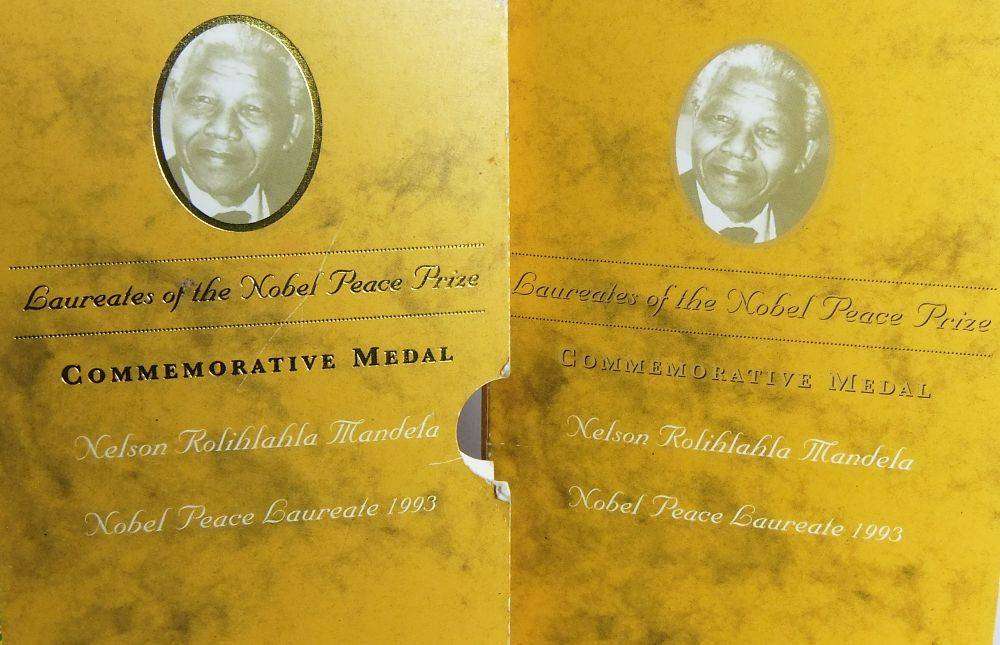 Laureates of the Nobel Peace Prize
COMMEMORATIVE MEDAL
Nelson Rolihlahla Mandela
Nobel Peace Laureate 1993
Laureates of the Nobel Peace Prize
COMMEMORATIVE MEDAL
Nelson Rolihlahla Mandela
Nobel Peace Laureate 1993